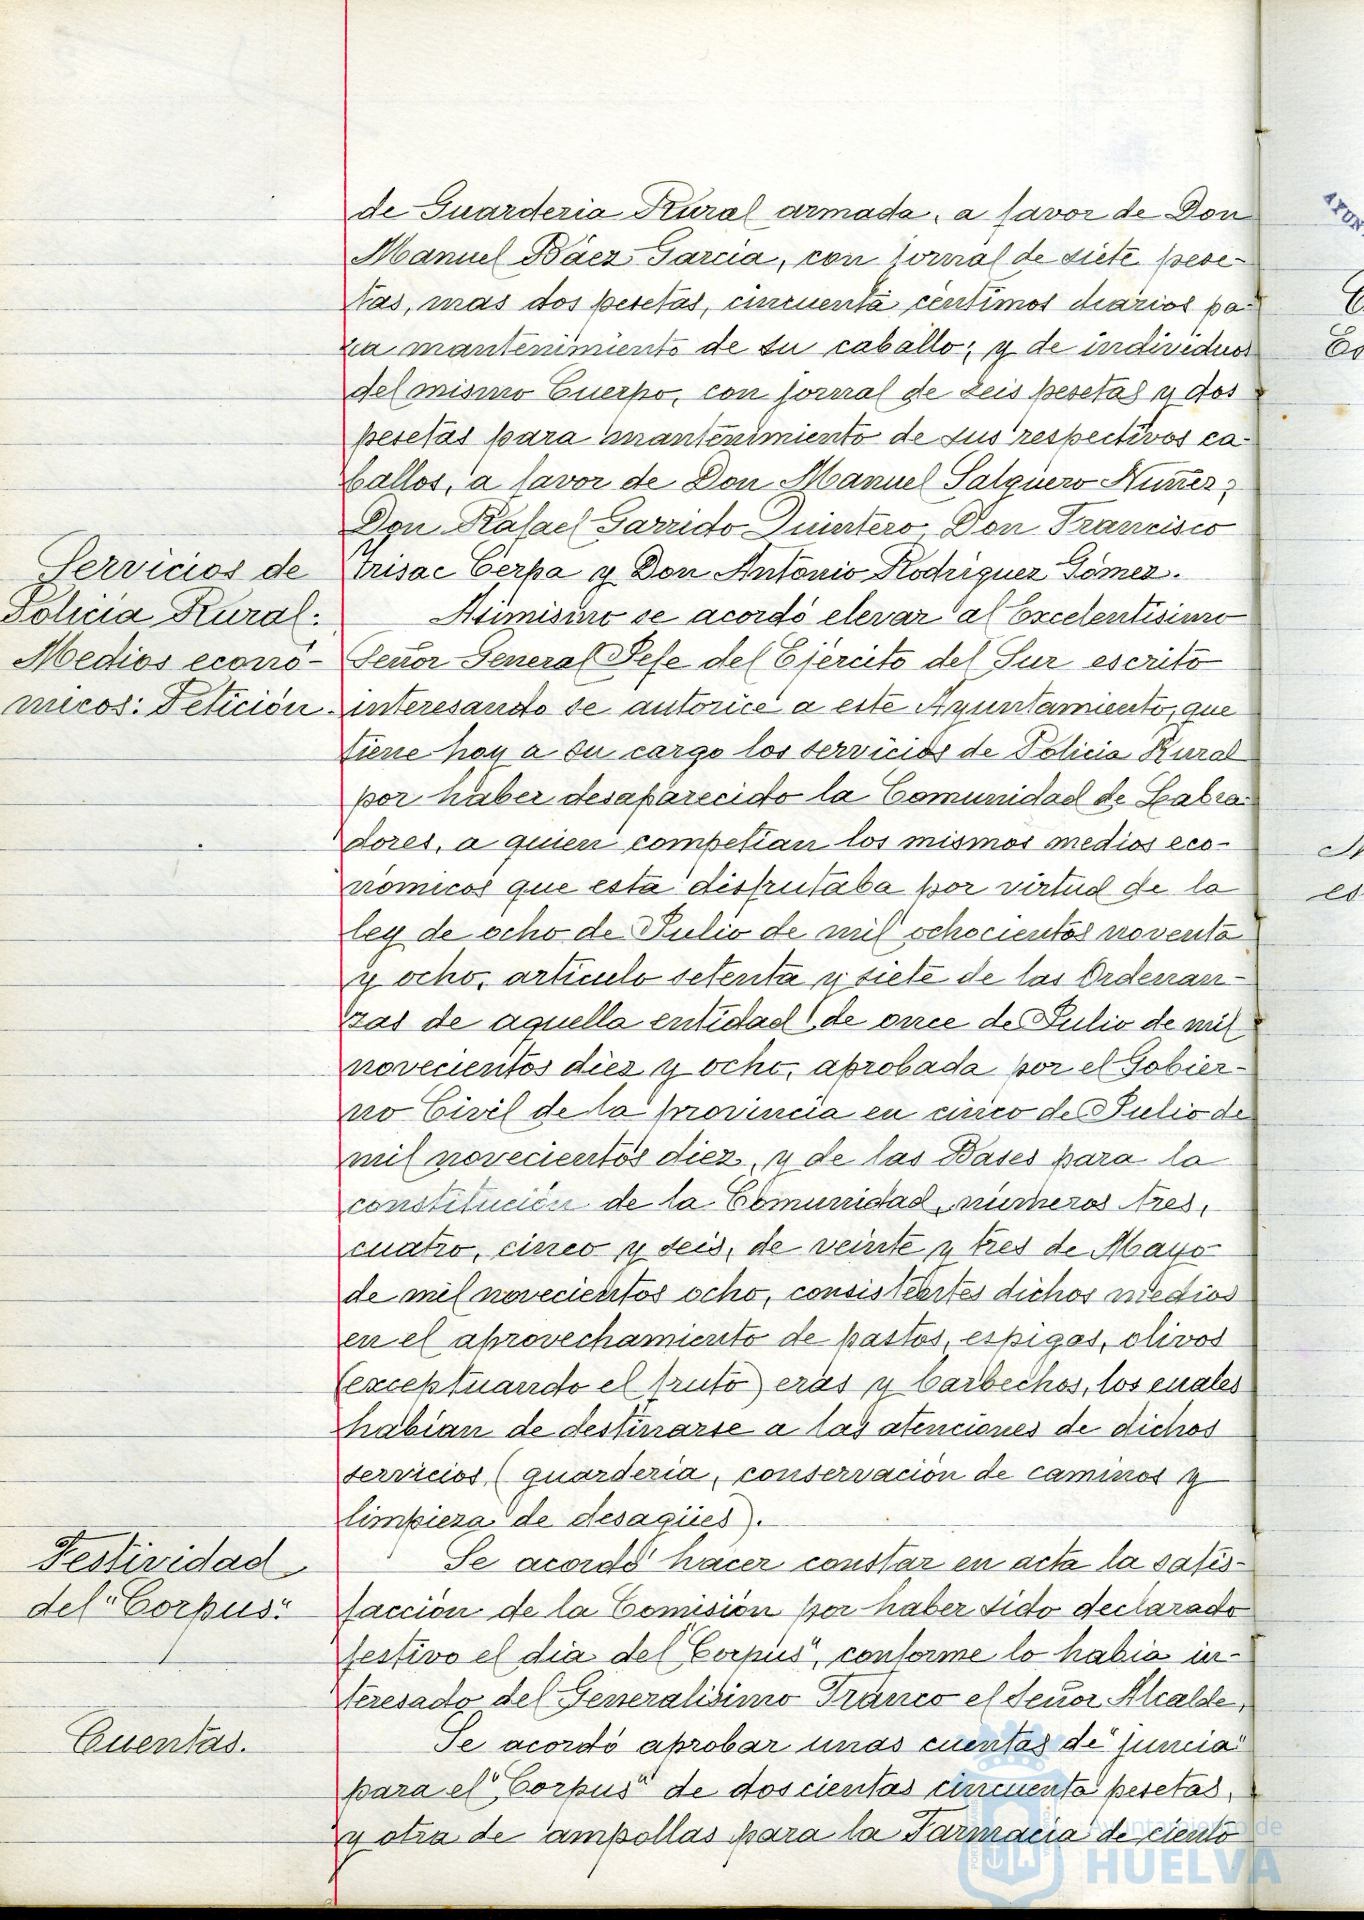 de Guarderia Rural armada, a favor de Don
Manuel Báez Garcia, con jornal de siete pese-
tas, mas dos pesetas, cincuenta céntimos diarios pa-
ra mantenimiento de su caballo; y de individuos
del mismo Cuerpo, con jornal de seis pesetas y dos
pesetas para mantenimiento de sus respectivos ca-
ballos, a favor de Don Manuel Salguero Nuñez;
Don Rafael Garrido Quintero, Don Francisco
Cerpa y Don Antonio Rodriguez Gómez.
Servicios de
Policia Rural:
Medios econó-
micos: Petición.
Asimismo se acordó elevar al Excelentisimo
Señor General Jefe del Ejército del Sur escrito
interesando se autorice a este Ayuntamiento, que
tiene hoy a su cargo los servicios de Policia Rural
por haber desaparecido la Comunidad de Labra-
dores, a quien competian los mismos medios eco-
nómicos que esta disfrutaba por virtud de la
ley de ocho de Julio de mil ochocientos noventa
y ocho, articulo setenta y siete de las Ordenan-
zas de aquella entidad de once de Julio de mil
novecientos diez y ocho, aprobada por el Gobier-
no Civil de la provincia en cinco de Julio de
mil novecientos diez, y de las Bases para la
constitución de la Comunidad, números tres,
cuatro, cinco y seis, de veinte y tres de Mayo
de mil novecientos ocho, consistentes dichos medios
en el aprovechamiento de pastos, espigas, olivos
(exceptuando el fruto) eras y barbechos, los cuales
habian de destinarse a las atenciones de dichos
servicios (guarderia, conservación de caminos y
limpieza de desagües).
Festividad
del "Corpus".
Se acordó hacer constar en acta la satis-
facción de la Comisión por haber sido declarado
festivo el dia del "Corpus", conforme lo habia in-
teresado del Generalisimo Franco el Señor Alcalde.
Cuentas.
Se acordó aprobar unas cuentas de "juncia"
para el "Corpus" de doscientas cincuenta pesetas,
y otra de ampollas para la Farmacia de ciento
Ayuntamiento de
HUELVA